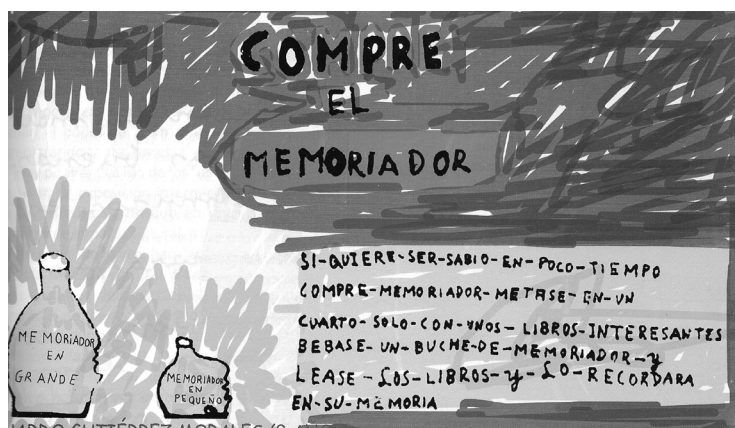 COMPRE
EL
MEMORIADOR
SI-QUIERE-SER-SABIO-EN-POCO-TIEMPO
COMPRE-MEMORIADOR-METASE-EN-UN
CUARTO-SOLO-CON-UNOS-LIBROS-INTERESANTES
BEBASE-UN-BUCHE-DE-MEMORIADOR-y
LEASE-LOS-LIBROS-y-LO-RECORDARA
EN-SU-MEMORIA
MEMORIADOR
EN
GRANDE
MEMORIADOR
EN
PEQUEÑO
GUTIÉRREZ MORALES